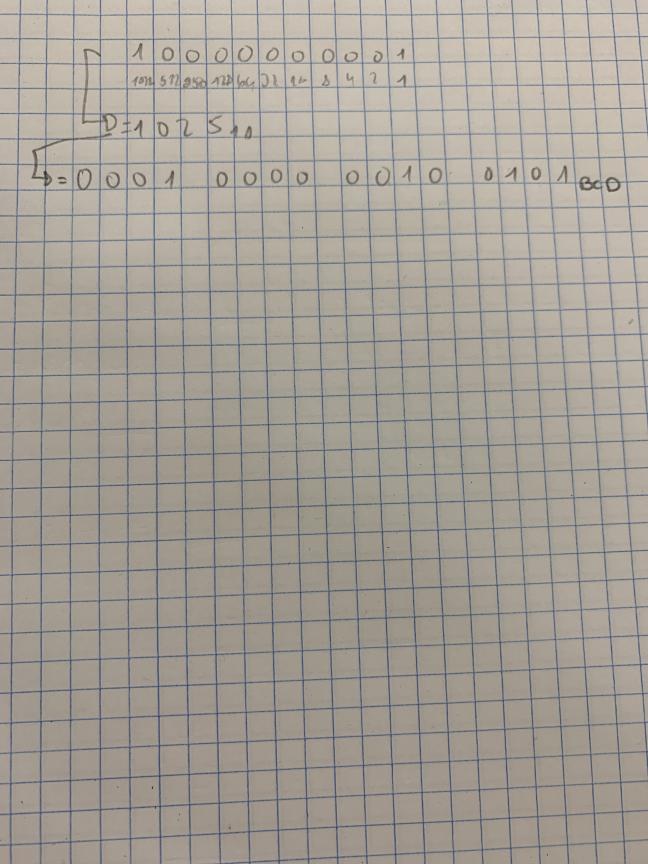 1 0 0 0 0 0 0 0 0 0 1
1024 512 256 128 64 32 16 8 4 2 1
D=1025₁₀
D=0001 0000 0010 0101 BCD